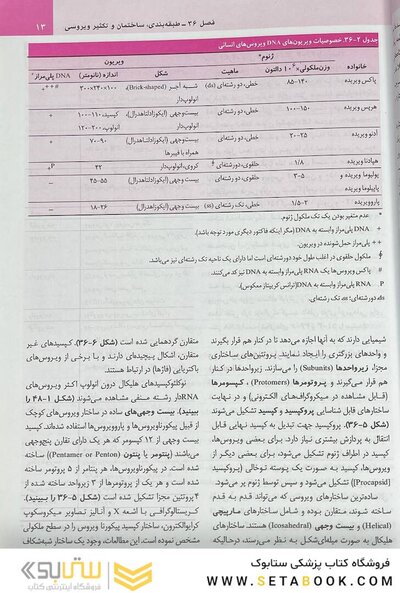 فصل ۳۶ - طبقه‌بندی، ساختمان و تکثیر ویروسی ۱۳
جدول ۲-۳۶. خصوصیات ویریون‌های DNA ویروس‌های انسانی
ژنوم* ویریون
خانواده وزن‌ملکولی×۱۰⁶ دالتون ماهیت شکل اندازه (نانومتر) DNA پلی‌مراز⁺
پاکس ویریده ۸۵-۱۴۰ خطی، دو رشته‌ای (ds) شبه آجر (Brick-shaped) ۳۰۰×۲۴۰×۱۰۰ ++#
انولوپ‌دار
هرپس ویریده ۱۰۰-۱۵۰ خطی، دو رشته‌ای بیست‌وجهی (ایکوزادلتاهدرال) کپسید، ۱۱۰-۱۰۰ +
انولوپ‌دار انولوپ، ۲۰۰-۱۲۰
آدنو ویریده ۲۰-۲۵ خطی، دو رشته‌ای بیست‌وجهی (ایکوزادلتاهدرال) ۷۰-۹۰ +
همراه با فیبرها
هپادنا ویریده ۱/۸ حلقوی، دو رشته‌ای ɸ کروی، انولوپ‌دار ۴۲ +P
پولیوما و ویریده ۳-۵ حلقوی، دو رشته‌ای بیست‌وجهی (ایکوزادلتاهدرال) ۴۵-۵۵ –
پاپیلوما ویریده
پاروویریده ۱/۵-۲ خطی، تک رشته‌ای (ss) بیست‌وجهی (ایکوزادلتاهدرال) ۱۸-۲۶ –
* عدم متغیر بودن یک تک ملکول ژنوم.
+ DNA پلی‌مراز وابسته به DNA (مگر اینکه فاکتور دیگری مورد توجه باشد).
++ پلی‌مراز حمل‌شونده در ویریون.
ɸ ملکول حلقوی در اغلب طول خود دورشته‌ای است اما دارای یک ناحیه تک رشته‌ای نیز می‌باشد.
# پاکس ویروس‌ها یک RNA پلی‌مراز وابسته به DNA نیز کد می‌کنند.
P RNA پلی‌مراز وابسته به DNA (ترانس کریپتاز معکوس).
ds دورشته‌ای؛ ss، تک رشته‌ای.
شیمیایی دارند که به آنها اجازه می‌دهد تا در کنار هم قرار بگیرند
و واحدهای بزرگتری را ایجاد نمایند. پروتئین‌های ساختاری،
مجزا، زیرواحدها (Subunits) را می‌سازند. زیرواحدها در کنار
هم قرار می‌گیرند و پروتومرها (Protomers)، کپسومرها
(قابل مشاهده در میکروگراف‌های الکترونی) و در نهایت
ساختارهای قابل شناسایی پروکپسید و کپسید تشکیل می‌شوند
(شکل ۵-۳۶). پروکپسید جهت تبدیل به کپسید نهایی قابل
انتقال به پردازش بیشتری نیاز دارد. برای بعضی ویروس‌ها،
کپسید در اطراف ژنوم تشکیل می‌شود، برای بعضی دیگر از
ویروس‌ها، کپسید به صورت یک پوسته توخالی (پروکپسید
[Procapsid]) تشکیل می‌شود و سپس توسط ژنوم پر می‌شود.
ساده‌ترین ساختارهای ویروسی که می‌تواند قدم به قدم
ساخته شوند، متقارن بوده و شامل ساختارهای مارپیچی
(Helical) و بیست وجهی (Icosahedral) هستند. ساختارهای
هلیکال به صورت میله‌ای‌شکل به نظر می‌رسند، درحالیکه
متقارن گردهمایی شده است (شکل ۶-۳۶). کپسیدهای غیر
متقارن، اشکال پیچیده‌ای دارند و با برخی از ویروس‌های
باکتریایی (فاژها) در ارتباط هستند.
نوکلئوکپسیدهای هلیکال درون انولوپ اکثر
RNAدار رشته منفی مشاهده می‌شوند (شکل ۱-۴۸ را
ببینید). بیست وجهی‌های ساده در ساختار ویروس‌های کوچک
از قبیل پیکورناویروس‌ها و پاروویروس‌ها استفاده شده‌اند. کپسید
بیست وجهی از ۱۲ کپسومر که هر یک دارای تقارن پنج‌وجهی
می‌باشند (پنتومر یا پنتون (Pentamer or Penton)) ساخته
شده است. در پیکورناویروس‌ها، هر پنتامر از ۵ پروتومر ساخته
شده است و هر یک از پروتومرها از ۳ زیرواحد ساخته شده از
۴ پروتئین مجزا تشکیل شده است (شکل ۵-۳۶ را ببینید).
کریستالوگرافی با اشعه X و آنالیز تصاویر میکروسکوپ
کرایوالکترون، ساختار کپسید پیکورنا ویروس را در سطح ملکولی
مشخص نموده است. این مطالعات، وجود یک ساختار شبه‌شکاف
ستابوک
فروشگاه اینترنتی کتاب
فروشگاه کتاب پزشکی ستابوک
WWW.SETABOOK.COM